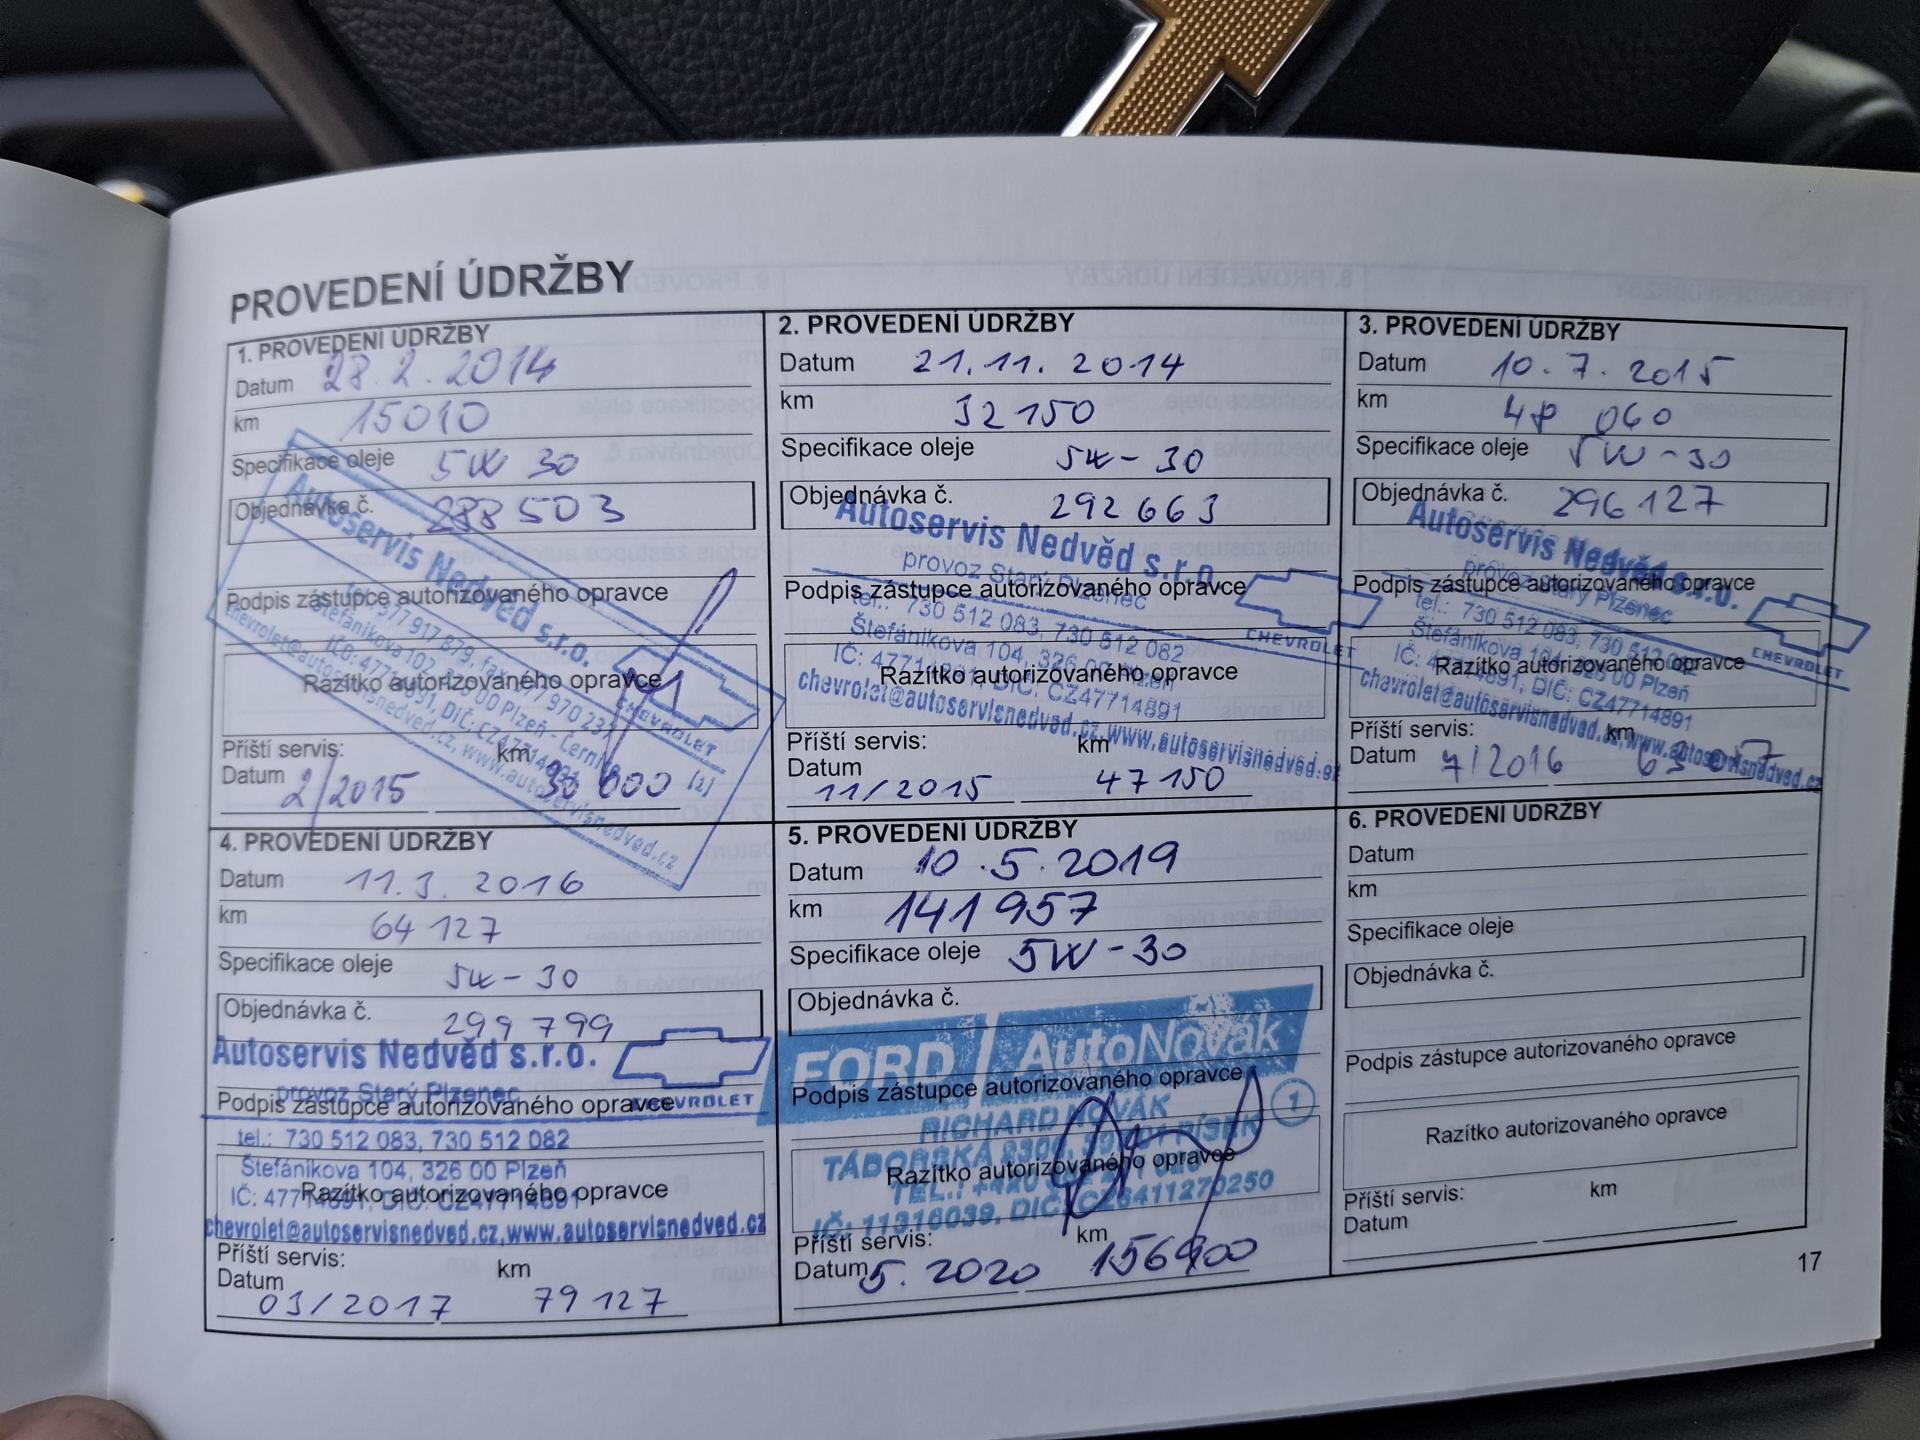 PROVEDENÍ ÚDRŽBY
1. PROVEDENÍ ÚDRŽBY
Datum 28.2.2014
km 15010
Specifikace oleje 5W 30
Objednávka č. 288503
Autoservis Nedvěd s.r.o.
Podpis zástupce autorizovaného opravce
Razítko autorizovaného opravce
CHEVROLET
Příští servis:
Datum 2/2015 km 30 000
2. PROVEDENÍ ÚDRŽBY
Datum 21.11. 2014
km 32 150
Specifikace oleje 5W-30
Objednávka č. 292 663
Autoservis Nedvěd s.r.o.
provoz Starý Plzenec
Podpis zástupce autorizovaného opravce
tel.: 730 512 083, 730 512 082
CHEVROLET
Štefánikova 104, 326 00 Plzeň
IČ: 47714891, DIČ: CZ47714891
Razítko autorizovaného opravce
chevrolet@autoservisnedved.cz, www.autoservisnedved.cz
Příští servis:
Datum 11/2015 km 47 150
3. PROVEDENÍ ÚDRŽBY
Datum 10.7. 2015
km 48 060
Specifikace oleje 5W-30
Objednávka č. 296 127
Autoservis Nedvěd s.r.o.
provoz Starý Plzenec
Podpis zástupce autorizovaného opravce
tel.: 730 512 083, 730 512 082
CHEVROLET
Štefánikova 104, 326 00 Plzeň
Razítko autorizovaného opravce
IČ: 47714891, DIČ: CZ47714891
chevrolet@autoservisnedved.cz, www.autoservisnedved.cz
Příští servis:
Datum 7/2016 km
4. PROVEDENÍ ÚDRŽBY
Datum 11.3. 2016
km 64 127
Specifikace oleje 5W-30
Objednávka č. 299 799
Autoservis Nedvěd s.r.o.
provoz Starý Plzenec
Podpis zástupce autorizovaného opravce
CHEVROLET
tel.: 730 512 083, 730 512 082
Štefánikova 104, 326 00 Plzeň
IČ: 47714891, DIČ: CZ47714891
Razítko autorizovaného opravce
chevrolet@autoservisnedved.cz, www.autoservisnedved.cz
Příští servis:
Datum 03/2017 km 79 127
5. PROVEDENÍ ÚDRŽBY
Datum 10.5.2019
km 141 957
Specifikace oleje 5W-30
Objednávka č.
FORD AutoNovák
Podpis zástupce autorizovaného opravce
1
RICHARD NOVÁK
TÁBORSKÁ PÍSEK
Razítko autorizovaného opravce
IČ: 11316039, DIČ: CZ6411270250
Příští servis:
Datum 5. 2020 km 156900
6. PROVEDENÍ ÚDRŽBY
Datum
km
Specifikace oleje
Objednávka č.
Podpis zástupce autorizovaného opravce
Razítko autorizovaného opravce
Příští servis:
Datum km
17